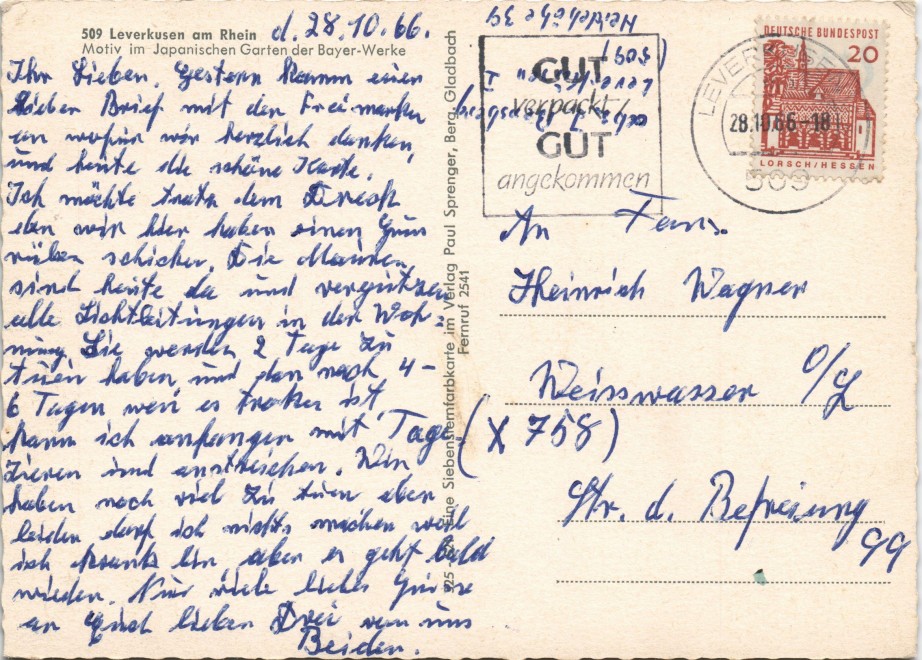 509 Leverkusen am Rhein
Motiv im Japanischen Garten der Bayer-Werke
d. 28.10.66.
Ihr Lieben, Gestern kamm euer
lieber Brief mit den Freimarken
an wofür wir herzlich danken,
und heute die schöne Karte.
Ich möchte trotz dem Dresk
den wir hier haben einen Gruss
rüber schicken. Die Maurer
sind heute da und vergipsen
alle Lichtleitungen in der Woh-
nung Sie werden 2 Tage zu
tuen haben und dan nach 4 -
6 Tagen wen es troken ist,
kann ich anfangen mit Tape
zieren und anstreichen. Wir
haben noch viel zu tuen aber
leider darf ich nichts machen weil
ich krank bin, aber es geht bald
wieder. Nur viele liebe Grüsse
an Euch lieben Drei von uns
Beiden.
325 Eine Siebensternfarbkarte im Verlag Paul Sprenger, Berg. Gladbach
Fernruf 2541
Leverkusen 1
(509)
Heidehöhe 39
GUT
verpackt
GUT
angekommen
LEVERKUSEN
28.10.66-18
509
DEUTSCHE BUNDESPOST
20
LORSCH/HESSEN
An Fam.
Heinrich Wagner
Weisswasser O/L
(X 758)
Str. d. Befreiung
99